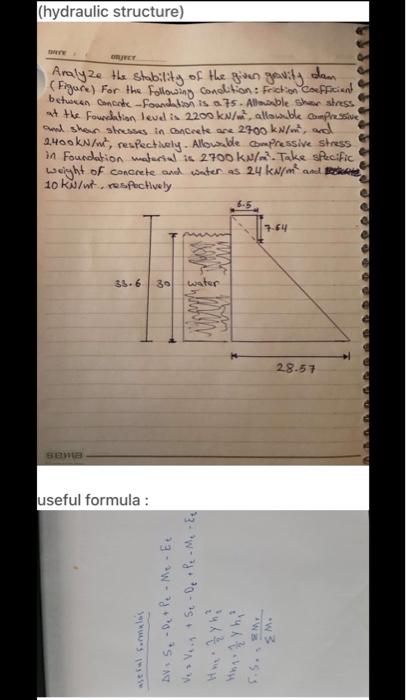 (hydraulic structure)
DATE
SUBJECT
Analyze the stability of the given gravity dam
(Figure) For the following condition: Friction Coefficient
between concrete - foundation is 0.75. Allowable shear stress
at the Foundation level is 2200 kN/m², allowable compressive
and shear stresses in concrete are 2700 kN/m², and
2400 kN/m², respectively. Allowable compressive stress
in Foundation material is 2700 kN/m². Take specific
weight of concrete and water as 24 kN/m² and
10 kN/m², respectively
6.5
7.64
33.6 30 water
28.57
useful formula :
useful formulas
ΔV = St - Ot + Pt - Mt - Et
Vt = Vt-1 + St - Ot + Pt - Mt - Et
F.S. = ΣMr
ΣMo